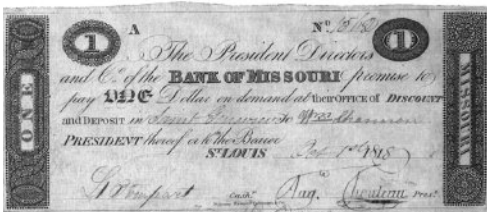 1 A Nº 1
The President Directors
and Cº. of the BANK OF MISSOURI promise to
pay ONE Dollar on demand at their OFFICE OF DISCOUNT
and DEPOSIT in Saint Genevieve to
PRESIDENT thereof or to the Bearer
Sᵀ LOUIS 1st 1818
Cashʳ Augᵗᵉ Chouteau Presᵗ
ONE
MISSOURI